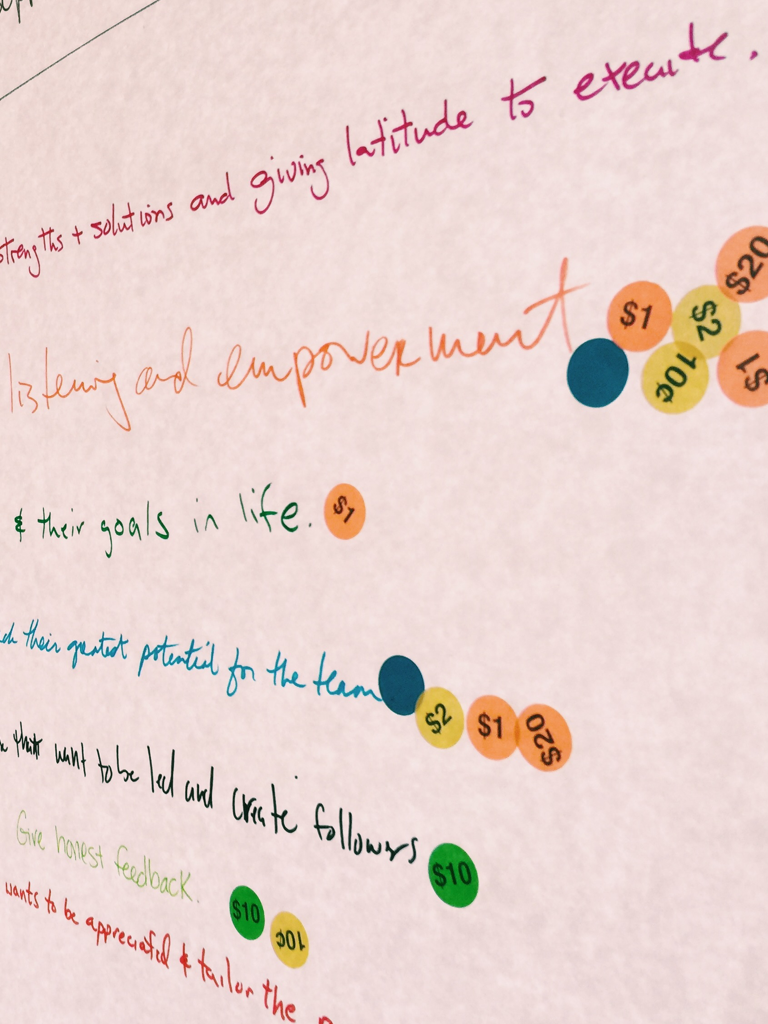 strengths + solutions and giving latitude to execute.
listening and empowerment $1 $2 $20 10¢ $1
& their goals in life. $1
their greatest potential for the team $2 $1 $20
that want to be led and create followers $10
Give honest feedback. $10 10¢
wants to be appreciated & tailor the